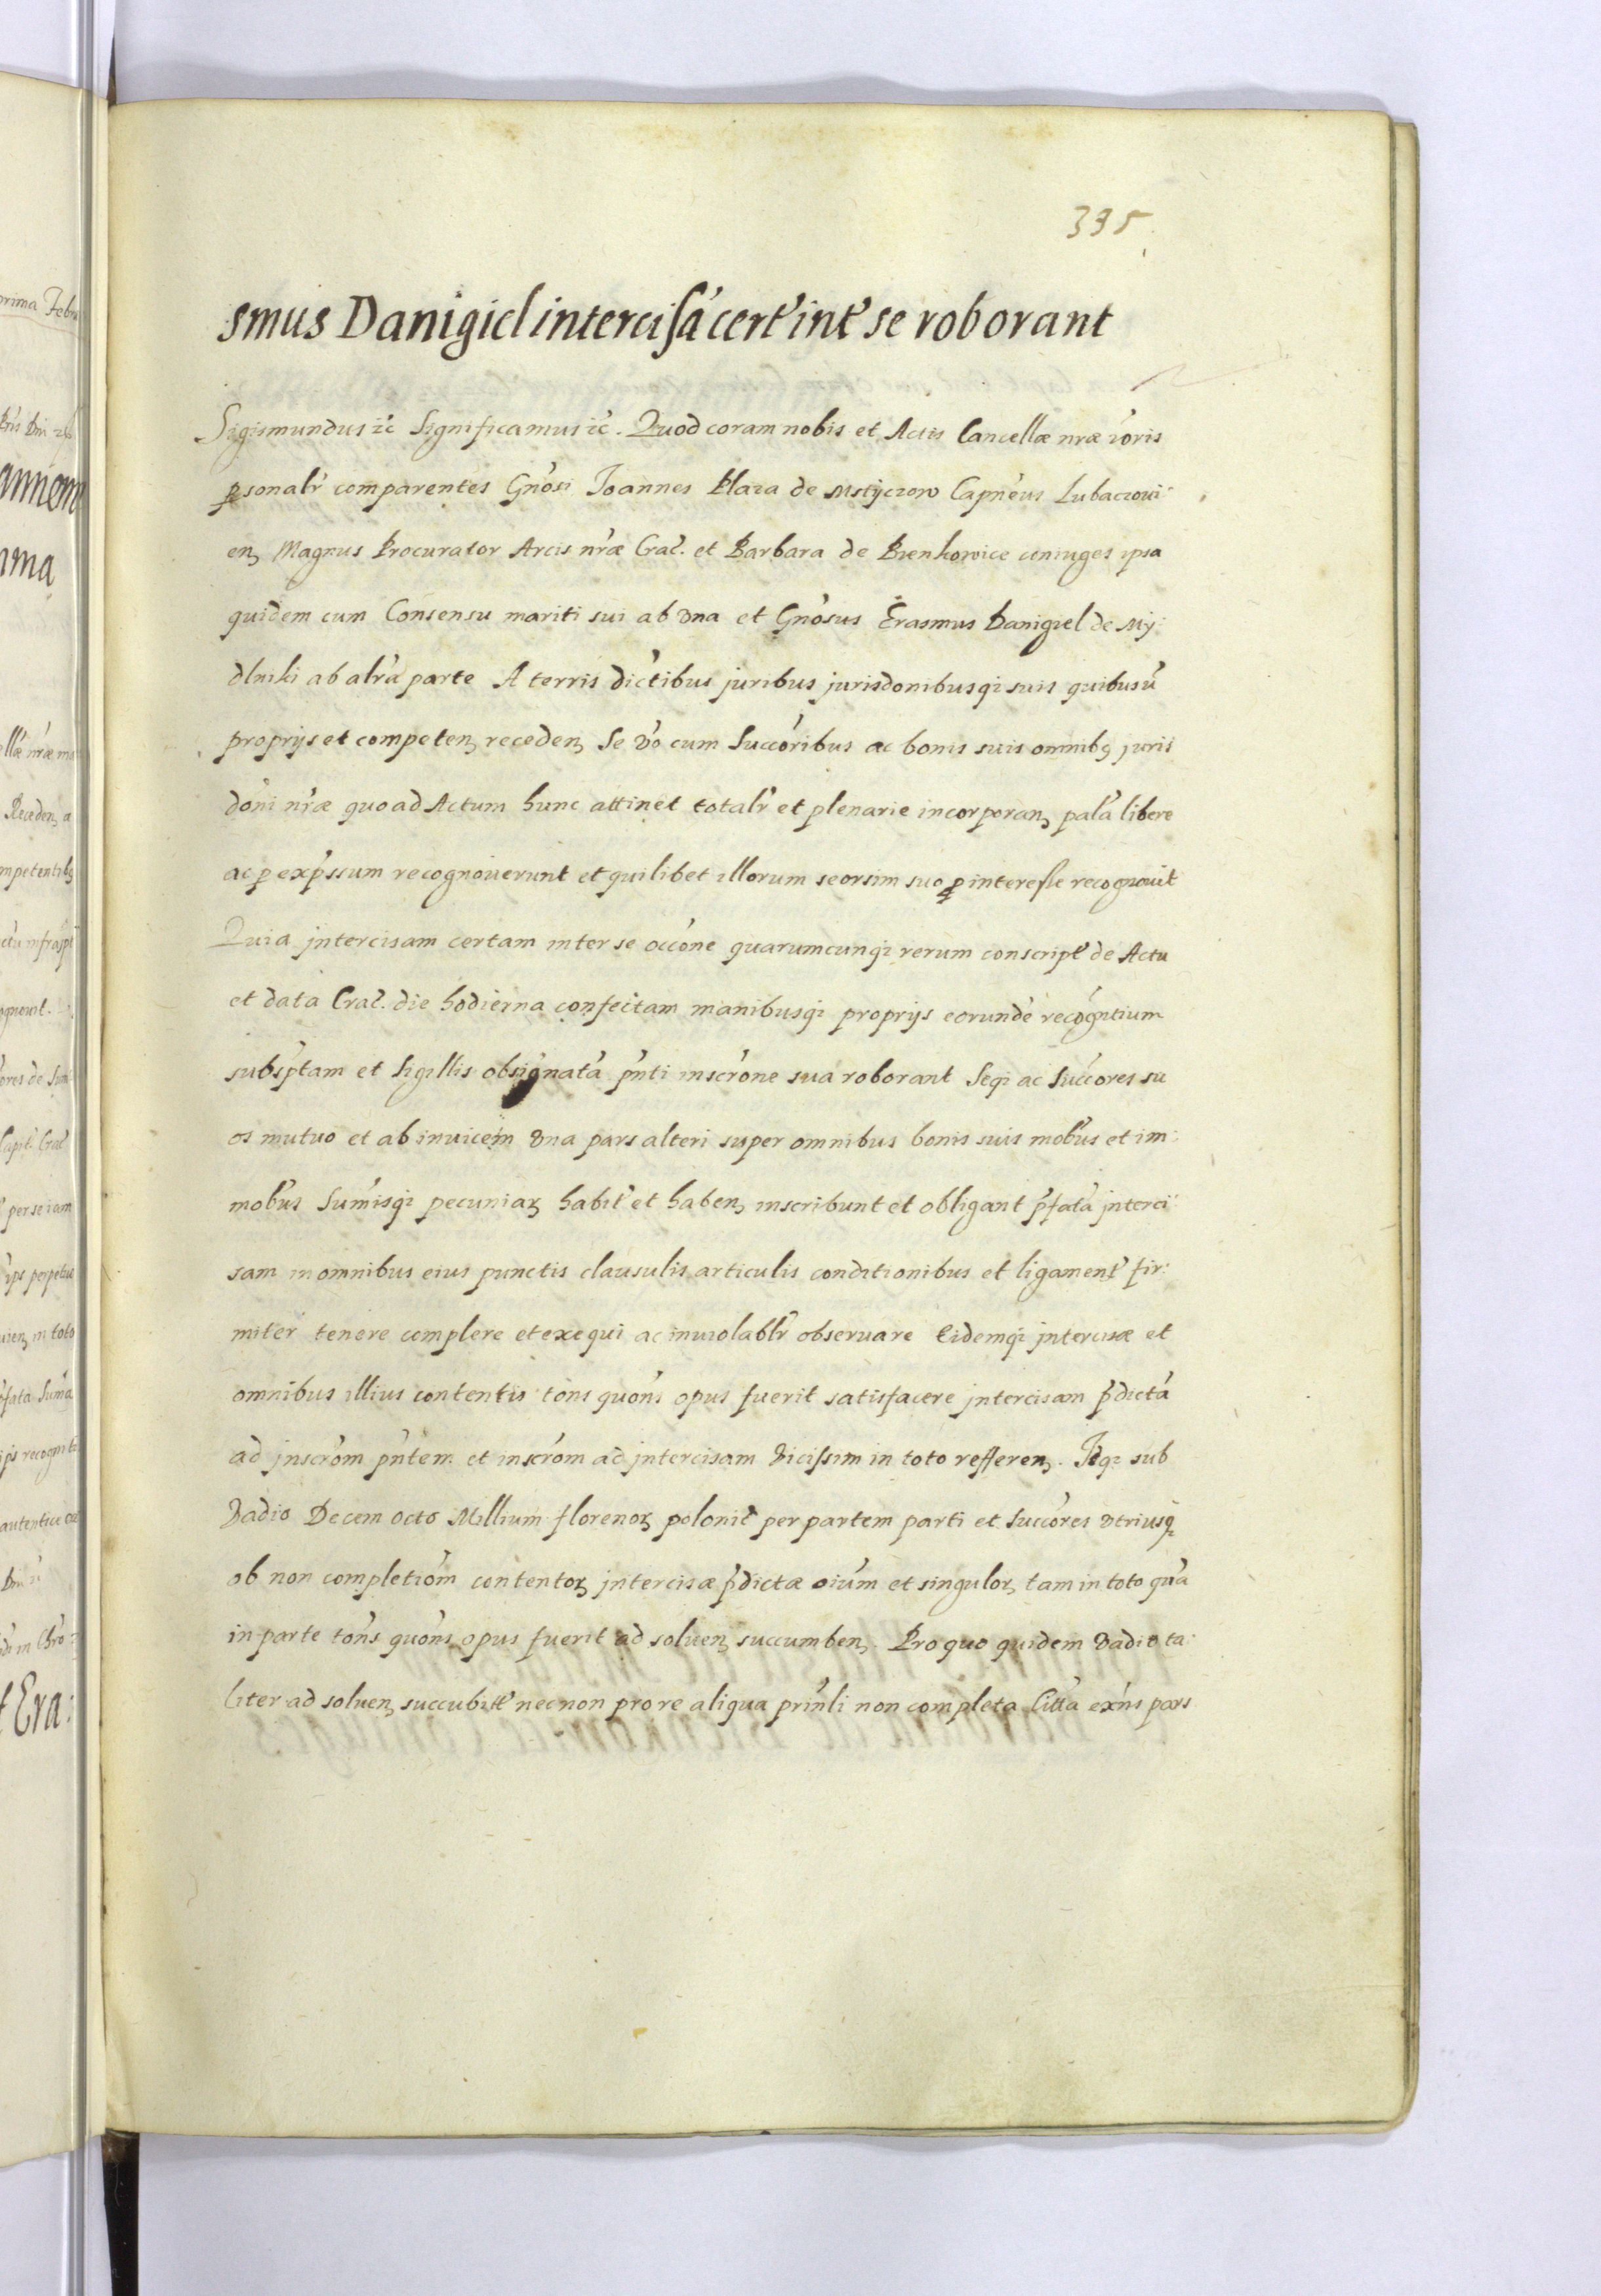 335.
smus Danigiel intercisá cert' int' se roborant
Sigismundus ꝛc̃ Significamus ꝛc̃. Quod coram nobis et Actis Cancellæ nr̃æ
ꝑsonalr̃ comparentes Gn̓osi Joannes Plaza de Mstyczow Capn̓eus Lubaczoui-
en̨ Magnus Procurator Arcis nr̃æ Crac̃. et Barbara de Bienkowice coniuges ipsa
quidem cum Consensu mariti sui ab vna et Gn̓osus Erasmus Danigiel de My:
dlniki ab altr̓a parte A terris dic̓tibus juribus jurisdonibusqꝫ suis quibusũ
proprijs et competen̨ receden̨ Se v̓o cum Succ̓oribus ac bonis suis omnibꝫ juris
d̓oni nr̃æ quo ad Actum hunc attinet totalr̃ et plenarie incorporan̨ pal̓a libere
ac ꝑ exp̓ssum recognouerunt et quilibet illorum seorsim suo ꝓ interesse recognouit
Quia jntercisam certam inter se occ̓one quarumcunqꝫ rerum conscript' de Actu
et data Crac̃. die hodierna confectam manibusqꝫ proprijs eorund̓e rec̓ogntium
subsp̓tam et Sigillis obsignat̓a p̓nti inscr̓one sua roborant Seqꝫ ac Succ̓ores su
os mutuo et ab inuicem vna pars alteri super omnibus bonis suis mob̓us et im:
mob̓us Sum̓isqꝫ pecuniaꝝ habit' et haben̨ inscribunt et obligant p̓fat̓a jnterci
sam in omnibus eius punctis clausulis articulis conditionibus et ligament' fir:
miter tenere complere et exequi ac inuiolablr̃ obseruare Eidemqꝫ jntercisæ et
omnibus illius contentis to̓ns quo̓ns opus fuerit satisfacere jntercisam p̓dict̓a
ad jnscr̓om p̓ntem et inscr̓om ad jntercisam vicissim in toto referen̨. Idqꝫ sub
vadio Decem octo Millium florenoꝝ polonic̃ per partem parti et Succ̓ores vtriusqꝫ
ob non completi̓om contentoꝝ jntercisæ p̓dictæ oi̓um et singuloꝝ tam in toto qu̓a
in parte to̓ns quo̓ns opus fuerit ad soluen̨ succumben̨. Pro quo quidem vadio ta:
liter ad soluen̨ succubitt' necnon pro re aliqua pri̓nli non completa Citt̓a ex̓ns pars